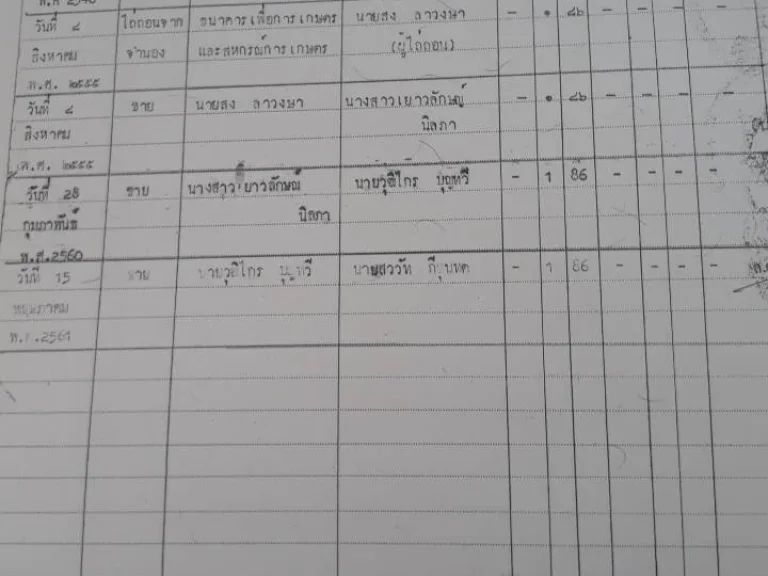 พ.ศ 2540
วันที่ ๘ ไถ่ถอนจาก ธนาคารเพื่อการเกษตร นายสง ลาวงษา - ๑ ๘๖ - - - -
สิงหาคม จำนอง และสหกรณ์การเกษตร (ผู้ไถ่ถอน)
พ.ศ. ๒๕๕๕
วันที่ ๘ ขาย นายสง ลาวงษา นางสาวเยาวลักษณ์ - ๑ ๘๖ - - - -
สิงหาคม นิลภา
พ.ศ. ๒๕๕๕
วันที่ 28 ขาย นางสาวเยาวลักษณ์ นายวุฒิไกร บุญทวี - 1 86 - - - -
กุมภาพันธ์ นิลภา
พ.ศ.2560
วันที่ 15 ขาย นายวุฒิไกร บุญทวี - 1 86 - - - -
พฤษภาคม
พ.ศ.2561